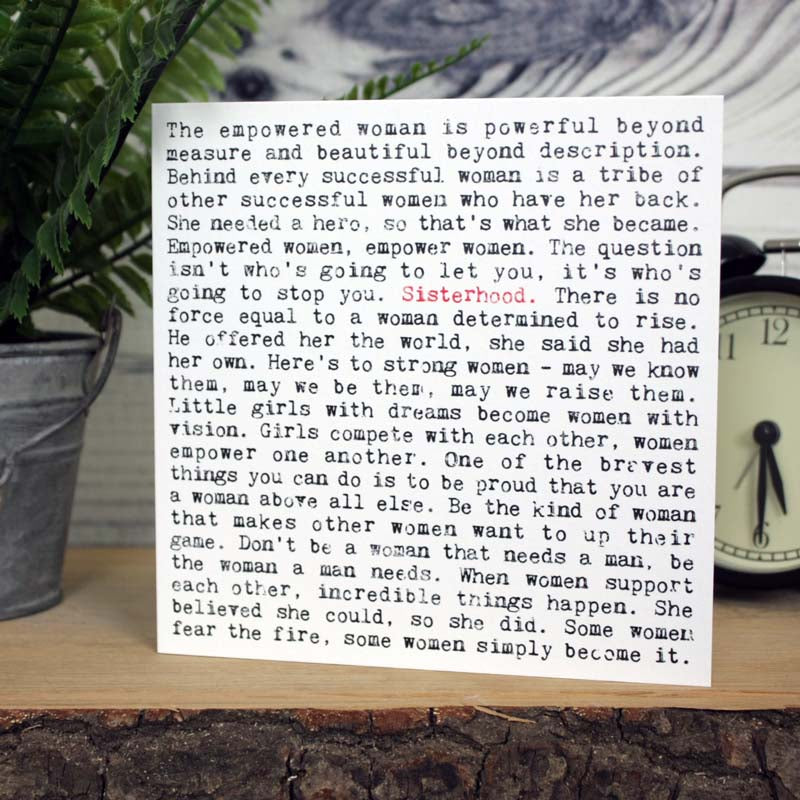 The empowered woman is powerful beyond
measure and beautiful beyond description.
Behind every successful woman is a tribe of
other successful women who have her back.
She needed a hero, so that's what she became.
Empowered women, empower women. The question
isn't who's going to let you, it's who's
going to stop you. Sisterhood. There is no
force equal to a woman determined to rise.
He offered her the world, she said she had
her own. Here's to strong women - may we know
them, may we be them, may we raise them.
Little girls with dreams become women with
vision. Girls compete with each other, women
empower one another. One of the bravest
things you can do is to be proud that you are
a woman above all else. Be the kind of woman
that makes other women want to up their
game. Don't be a woman that needs a man, be
the woman a man needs. When women support
each other, incredible things happen. She
believed she could, so she did. Some women
fear the fire, some women simply become it.
11 12
6